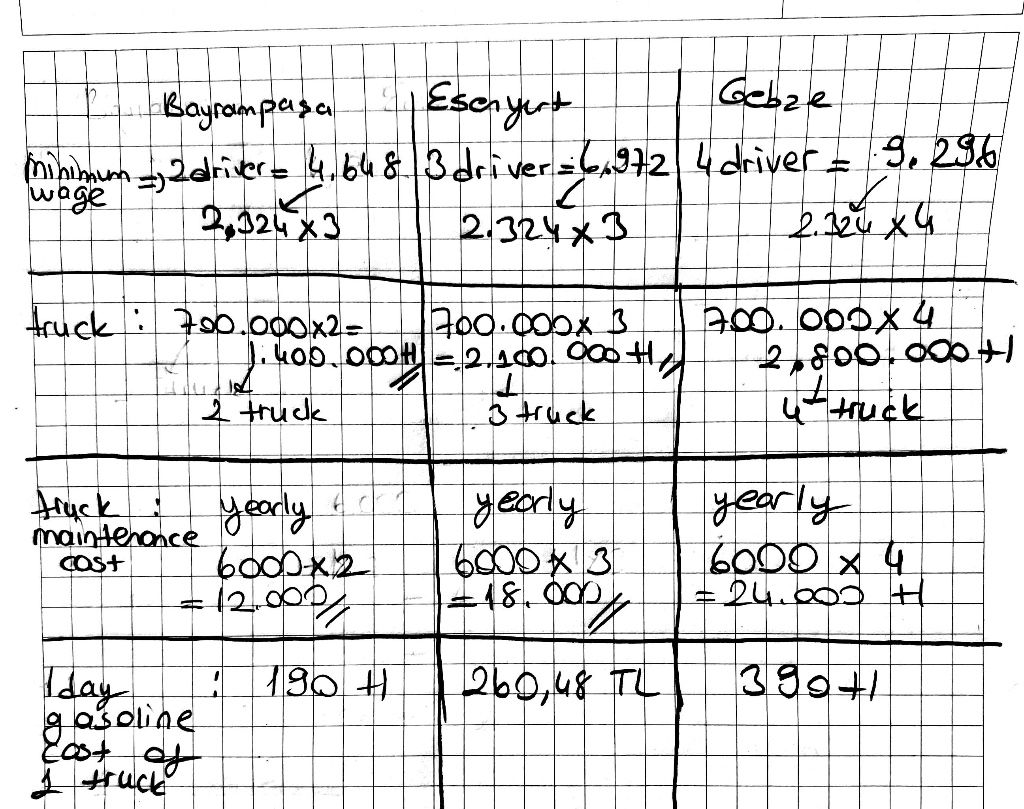 Bayrampaşa Esenyurt Gebze
minimum wage => 2 driver = 4.648 3 driver = 6,972 4 driver = 9.296
2,324 x 3 2.324 x 3 2.324 x 4
truck : 700.000x2= 700.000x 3 700.000 x 4
1.400.000 tl = 2.100.000 tl 2,800.000 tl
2 truck 3 truck 4 truck
truck : yearly yearly yearly
maintenance
cost 6000x2 6000 x 3 6000 x 4
= 12.000 = 18.000 = 24.000 tl
1 day : 190 tl 260,48 TL 390 tl
gasoline
cost of
1 truck